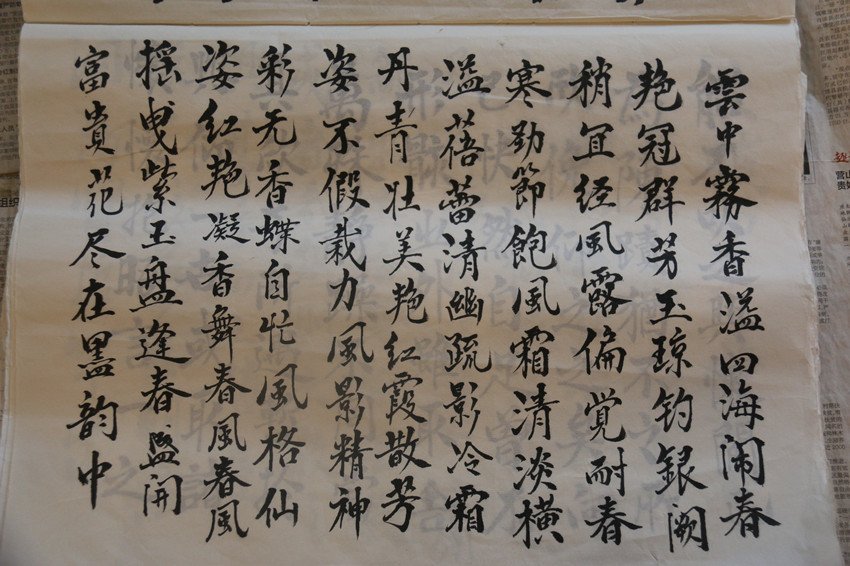 雲中霧香溢四海闹春
艳冠群芳玉琼钓銀阙
稍宜经风露偏觉耐春
寒劲節飽风霜清淡橫
溢蓓蕾清幽疏影冷霜
丹青壮美艳红霞散芳
姿不假栽力风影精神
彩无香蝶自忙风格仙
姿红艳凝香舞春風春風
摇曳紫玉盘逢春盛開
富贵花尽在墨韵中